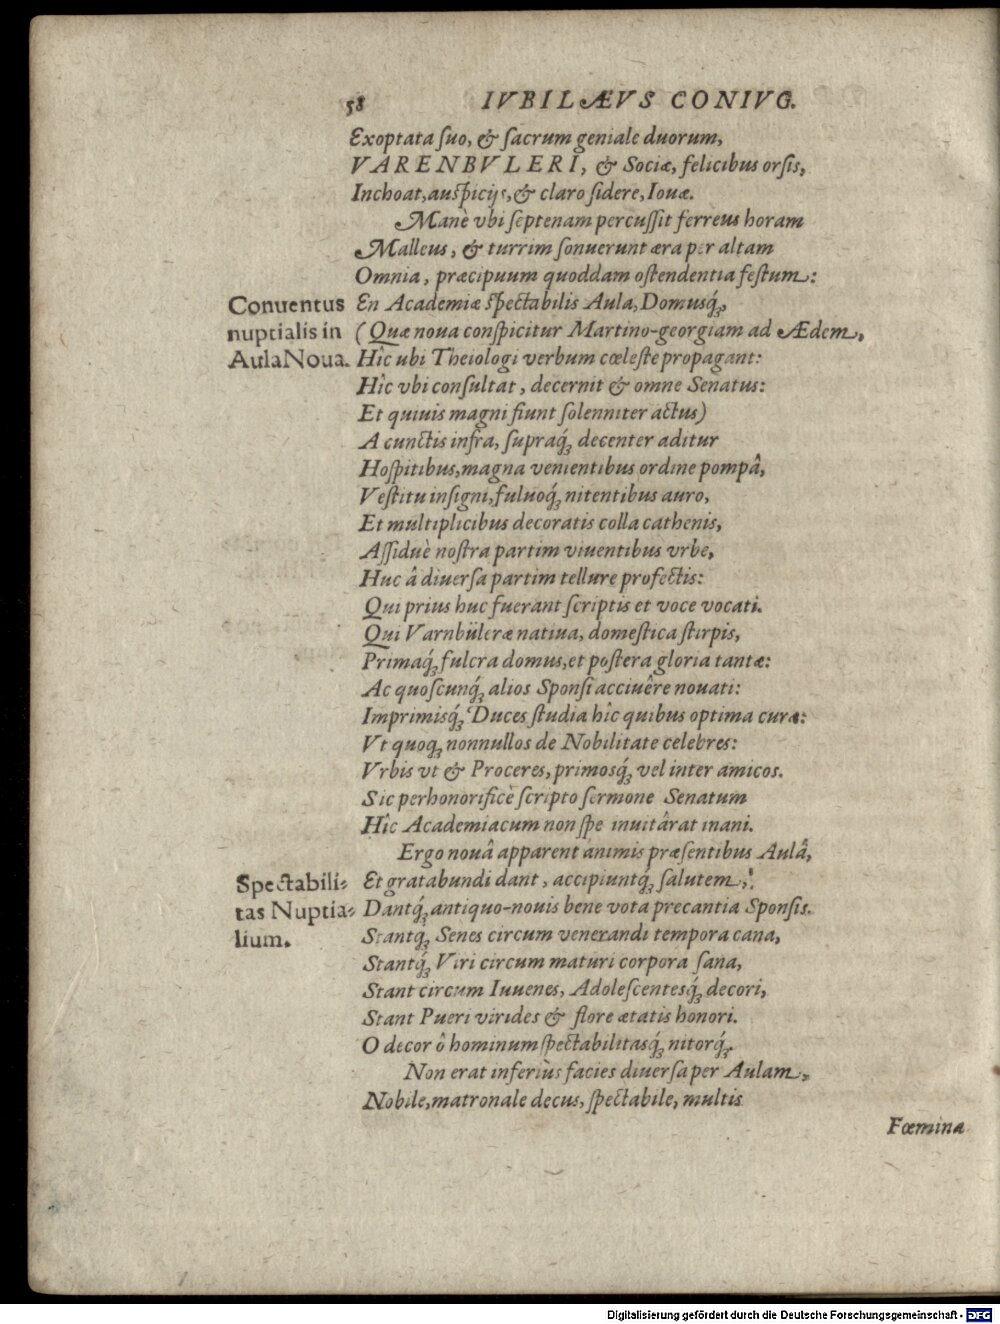 58 IVBILÆVS CONIVG.
Exoptata ſuo, & ſacrum geniale duorum,
VARENBVLERI, & Sociæ, felicibus orſis,
Inchoat, auſpicijs, & claro ſidere, Iouæ.
Manè vbi ſeptenam percuſſit ferreus horam
Malleus, & turrim ſonuerunt æra per altam
Omnia, præcipuum quoddam oſtendentia feſtum:
Conuentus nuptialis in Aula Noua.
En Academiæ ſpectabilis Aula, Domusq́;,
(Quæ noua conſpicitur Martino-georgiam ad Ædem,
Hîc ubi Theiologi verbum cœleſte propagant:
Hîc vbi conſultat, decernit & omne Senatus:
Et quiuis magni fiunt ſolenniter actus)
A cunctis infra, ſupraq́; decenter aditur
Hoſpitibus, magna venientibus ordine pompâ,
Veſtitu inſigni, fuluoq́; nitentibus auro,
Et multiplicibus decoratis colla cathenis,
Aſſiduè noſtra partim viuentibus vrbe,
Huc â diuerſa partim tellure profectis:
Qui prius huc fuerant ſcriptis et voce vocati.
Qui Varnbüleræ natiua, domeſtica ſtirpis,
Primaq́; fulcra domus, et poſtera gloria tantæ:
Ac quoſcunq́; alios Sponſi acciuêre nouati:
Imprimisq́; Duces ſtudia hîc quibus optima curæ:
Vt quoq; nonnullos de Nobilitate celebres:
Vrbis vt & Proceres, primosq́; vel inter amicos.
Sic perhonorificè ſcripto ſermone Senatum
Hîc Academiacum non ſpe inuitârat inani.
Ergo nouâ apparent animis præſentibus Aulâ,
Spectabilitas Nuptialium.
Et gratabundi dant, accipiuntq́; ſalutem,!
Dantq́; antiquo-nouis bene vota precantia Sponſis.
Stantq́; Senes circum venerandi tempora cana,
Stantq́; Viri circum maturi corpora ſana,
Stant circum Iuuenes, Adoleſcentesq́; decori,
Stant Pueri virides & flore ætatis honori.
O decor ô hominum ſpectabilitasq́; nitorq́;.
Non erat inferiùs facies diuerſa per Aulam,
Nobile, matronale decus, ſpectabile, multis
Fœmina
Digitalisierung gefördert durch die Deutsche Forschungsgemeinschaft - DFG